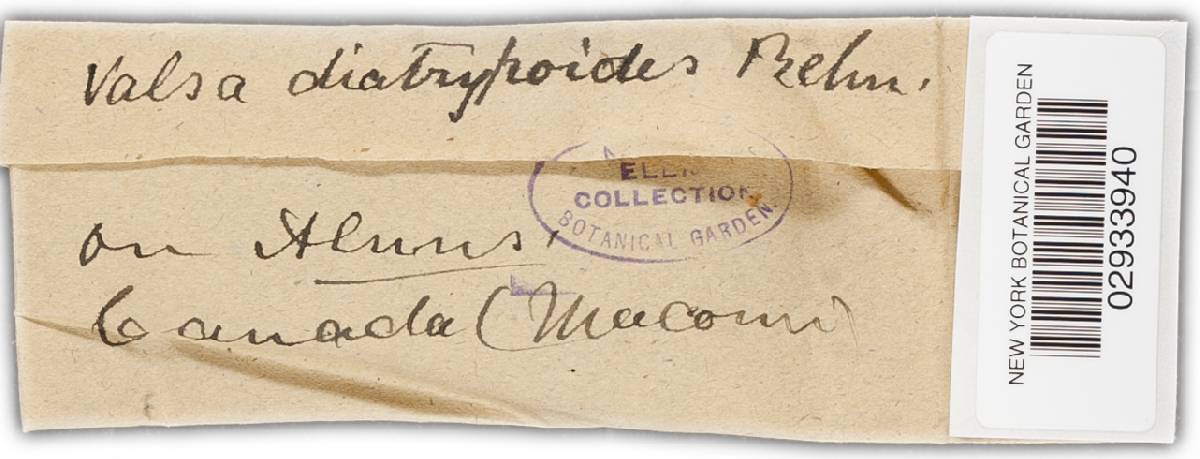 Valsa diatrypoides Rehm.
ELLIS
COLLECTION
BOTANICAL GARDEN
on Alnus,
Canada (Macoun)
NEW YORK BOTANICAL GARDEN
02933940